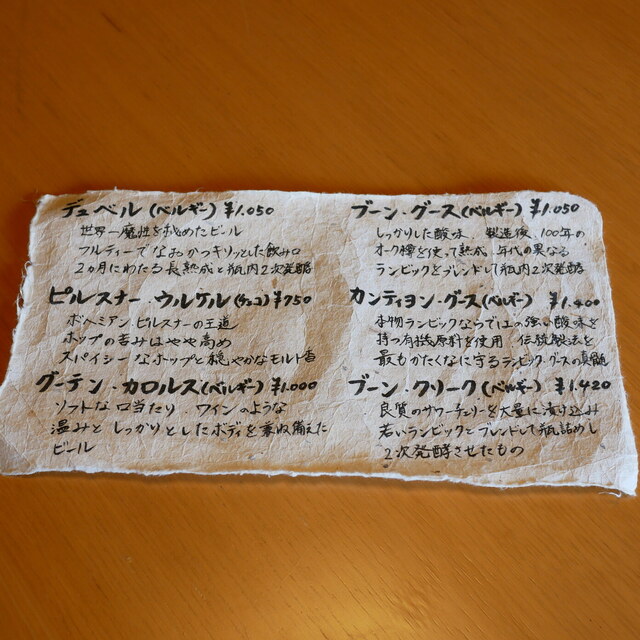 デュベル(ベルギー) ¥1.050
世界一魔性を秘めたビール
フルーティーでなおかつキリッとした飲み口
2ヵ月にわたる長熟成と瓶内2次発酵
ピルスナー・ウルケル(チェコ) ¥750
ボヘミアンピルスナーの王道
ホップの苦みはやや高め
スパイシーなホップと穏やかなモルト香
グーデン・カロルス(ベルギー) ¥1.000
ソフトな口当たり.ワインのような
温みとしっかりとしたボディを兼ね備えた
ビール
ブーン・グース(ベルギー) ¥1.050
しっかりした酸味.製造後、100年の
オーク樽を使って熟成.年代の異なる
ランビックをブレンドして瓶内2次発酵
カンティヨン・グース(ベルギー) ¥1.400
本物ランビックならではの強い酸味を
持つ有機原料を使用 伝統製法を
最もかたくなに守るランビック・グースの真髄
ブーン・クリーク(ベルギー) ¥1.420
良質のサワーチェリーを大量に漬け込み
若いランビックとブレンドして瓶詰めし
2次発酵させたもの